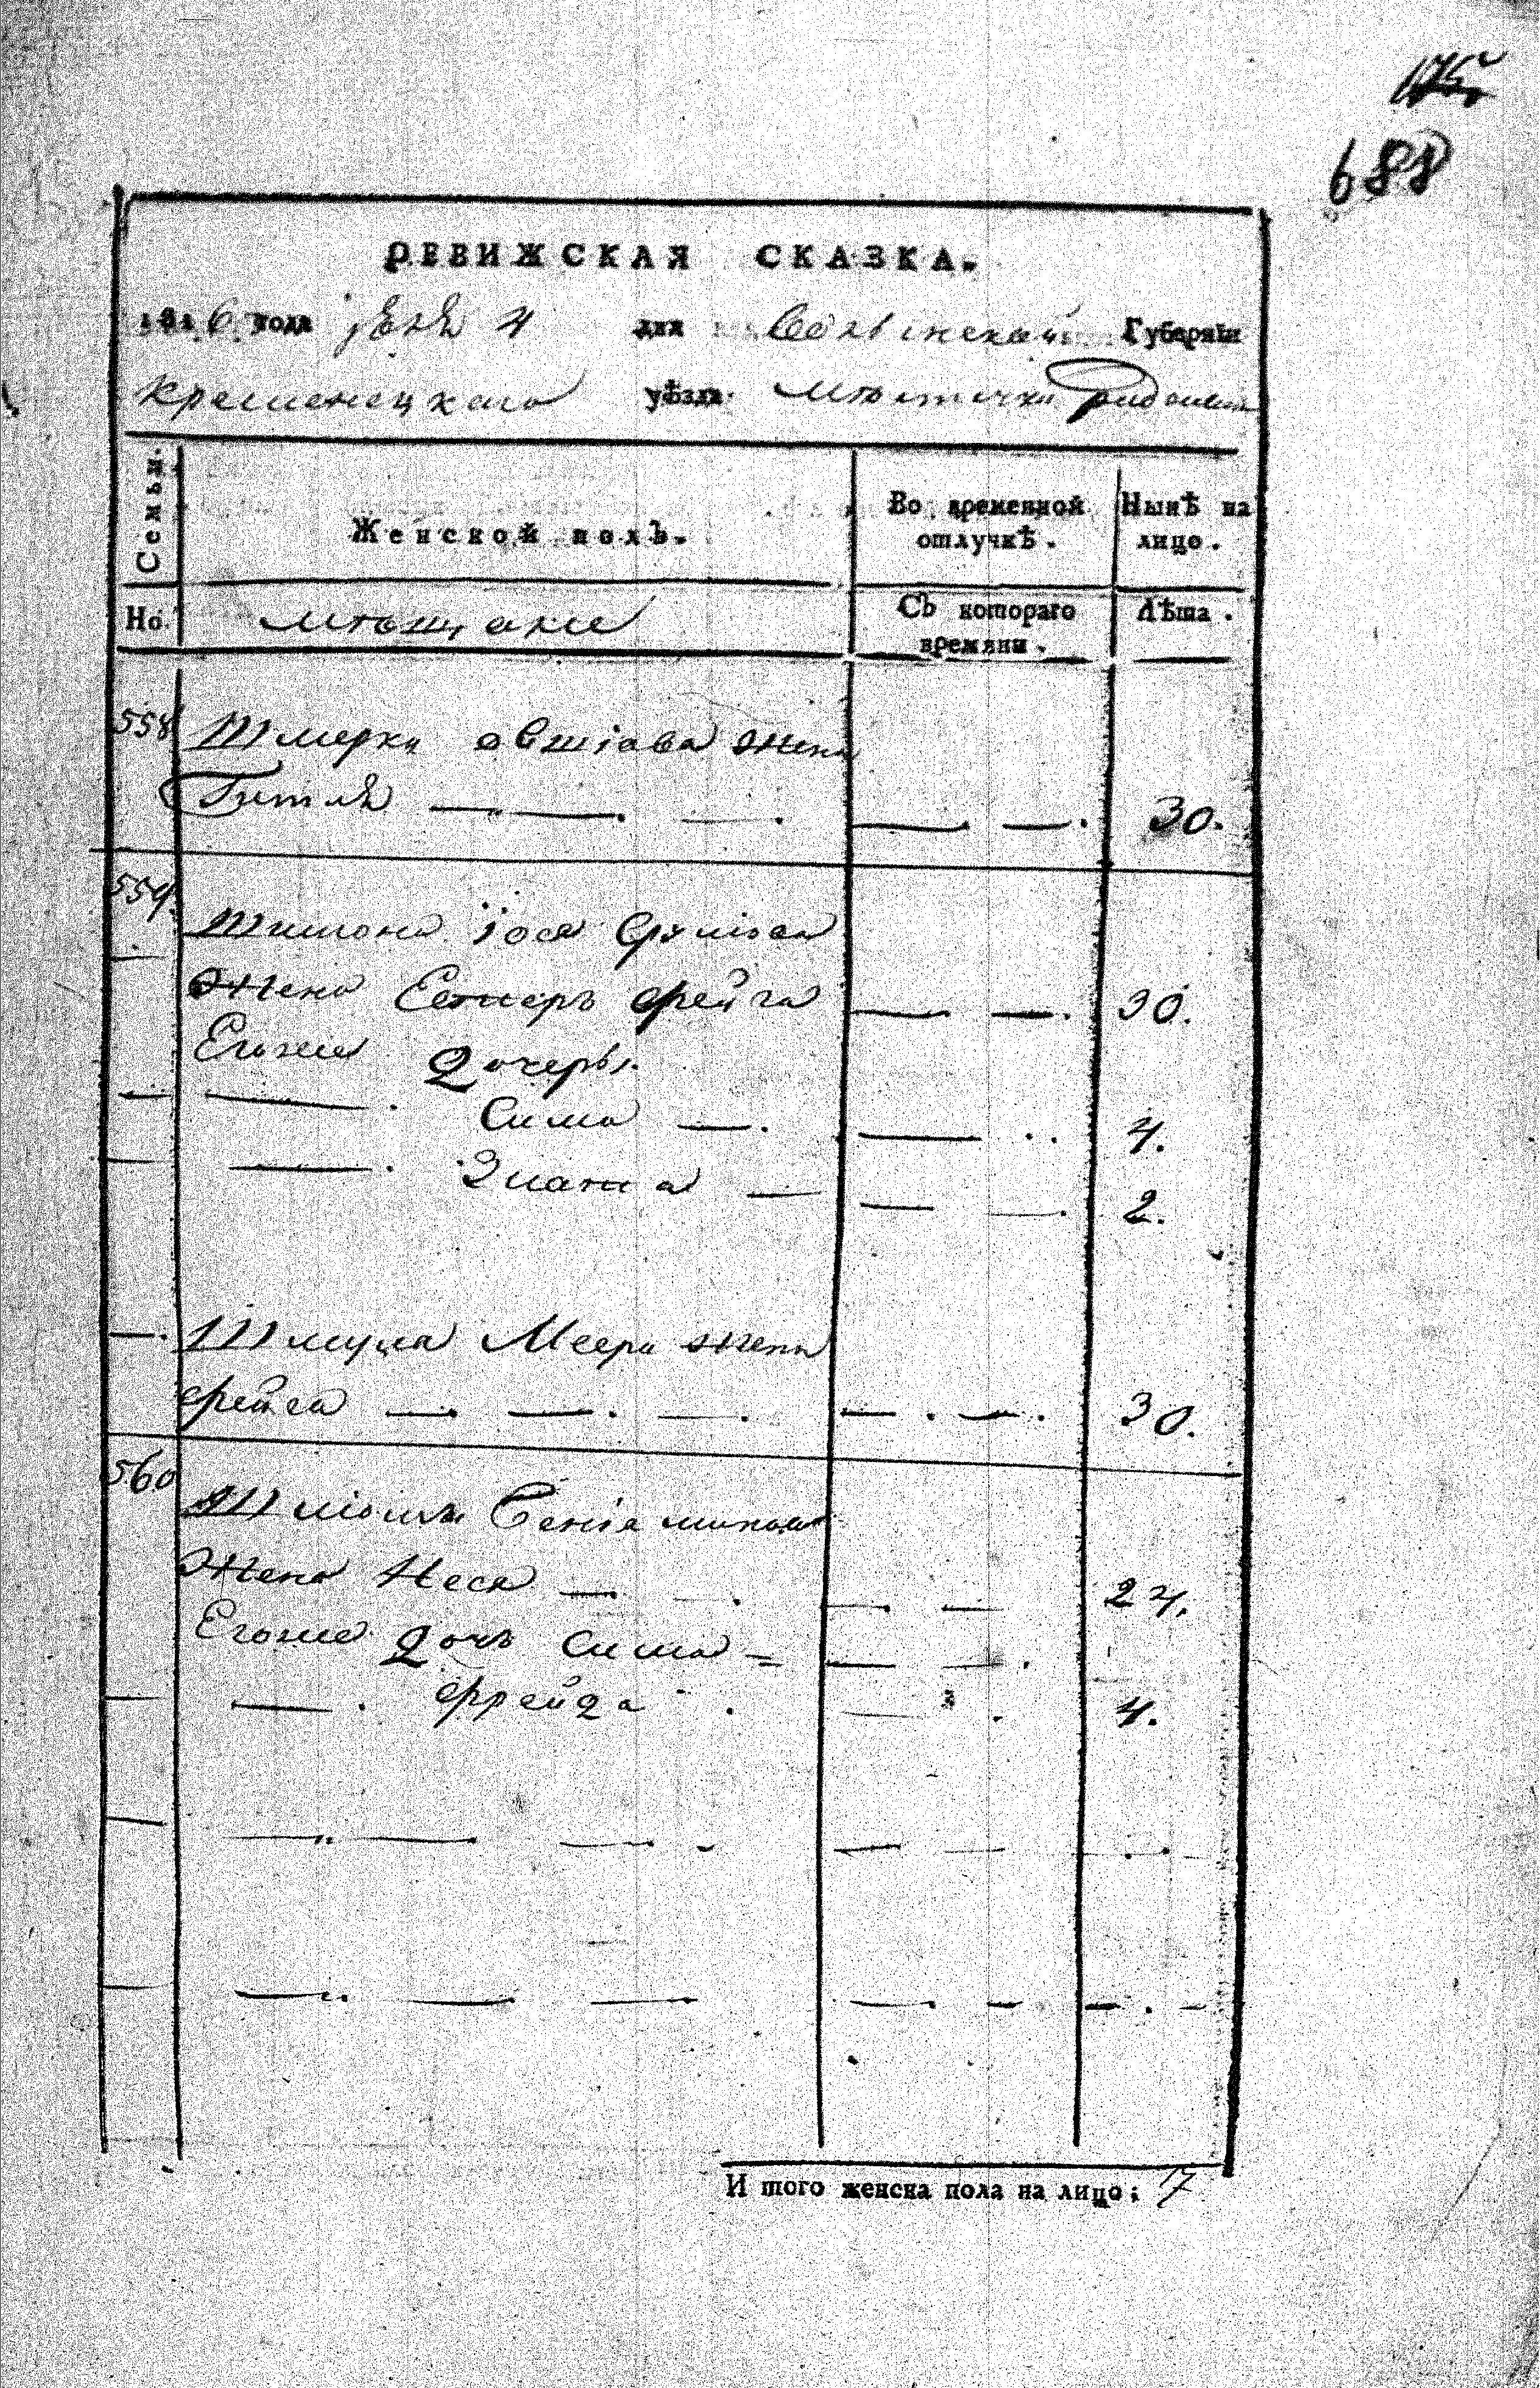 175
688
РЕВИЖСКАЯ СКАЗКА.
1816 года іюня 4 дня Волынской Губерніи
Кременецкаго уѣзда Мѣстечка
Семьи.
Женской полъ.
Во временной отлучкѣ.
Нынѣ на лицо.
Но.
мѣщане
Съ котораго времяни.
Лѣта.
558 Шмерки овшіова жена
Гитля — — . — . — . — . 30.
559. Шимона іося Сруліова
Жена Естеръ фейга — — . 30.
Егоже дочеры.
— . Сима — . — . . 4.
— . Злата — — — . 2.
— . Шмуля Меера жена
фейга — . — . — . — . — . 30.
560 Шліомы Беніаминова
Жена Неся — . — . — . — 24.
Егоже дочь Сима — — — .
— . ффейда . — . 4.
И того женска пола на лицо: 7